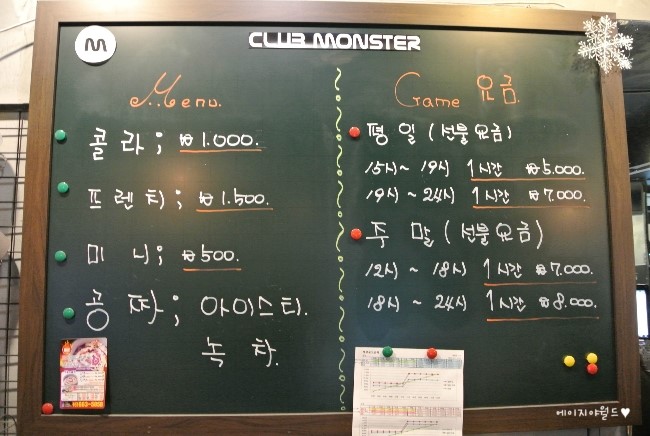 M
CLUB MONSTER
Menu.
콜라; ₩1.000.
프렌치; ₩1.500.
미니; ₩500.
공짜; 아이스티.
녹차.
Game 요금.
평일(선불요금)
15시~19시 1시간 ₩5.000.
19시~24시 1시간 ₩7.000.
주말(선불요금)
12시~18시 1시간 ₩7.000.
18시~24시 1시간 ₩8.000.
에이지아월드♥